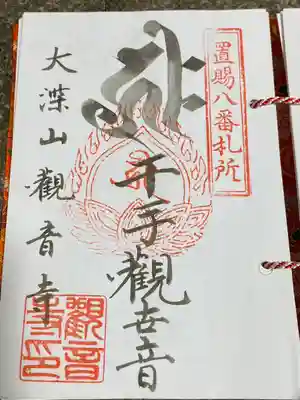 置賜八番札所
千手觀世音
大深山觀音寺
觀音寺印